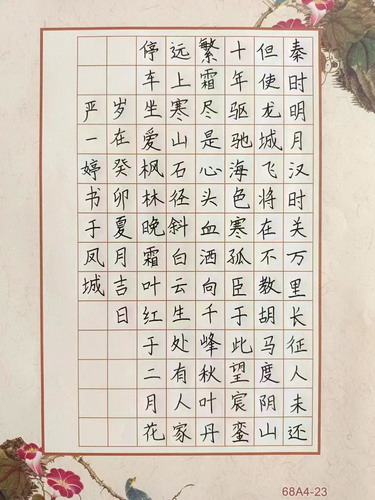 秦时明月汉时关万里长征人未还
但使龙城飞将在不教胡马度阴山
十年驱驰海色寒孤臣于此望宸銮
繁霜尽是心头血洒向千峰秋叶丹
远上寒山石径斜白云生处有人家
停车坐爱枫林晚霜叶红于二月花
岁在癸卯夏月吉日
严一婷书于凤城
68A4-23